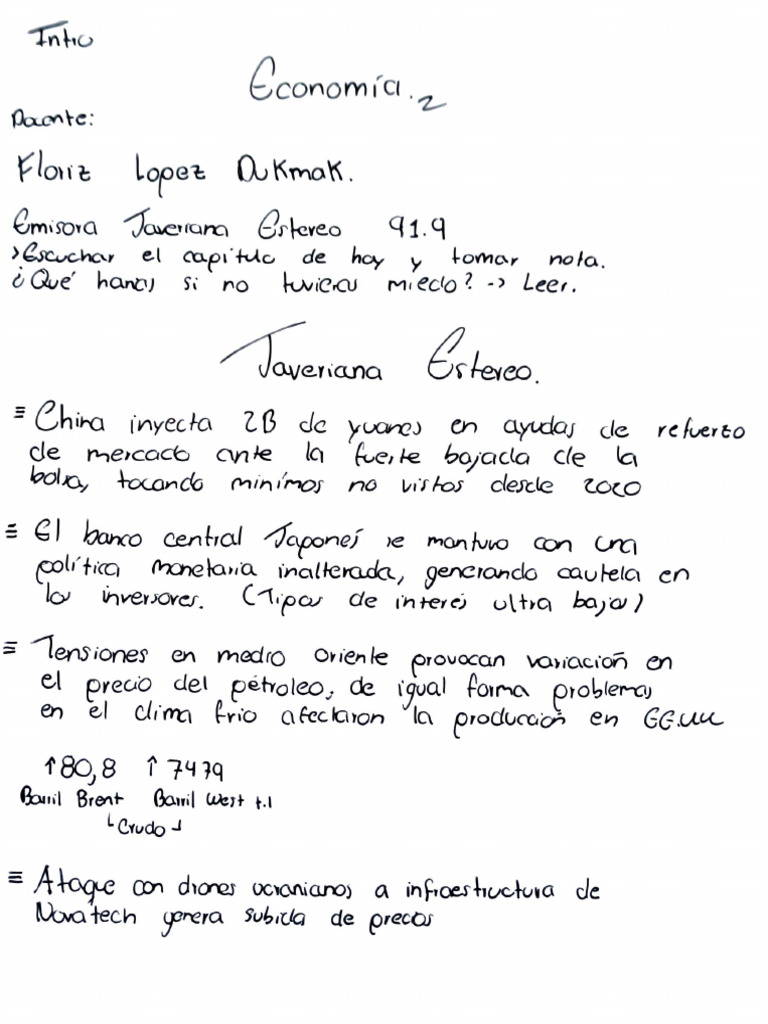 Intro
Economía. 2
Docente:
Floriz Lopez Dukmak.
Emisora Javeriana Estereo 91.9
>Escuchar el capítulo de hoy y tomar nota.
¿Qué harías si no tuvieras miedo? -> Leer.
Javeriana Estereo.
≡ China inyecta 2B de yuanes en ayudas de refuerto
de mercado ante la fuerte bajada de la
bolsa, tocando mínimos no vistos desde 2020
≡ El banco central Japonés se mantuvo con una
política monetaria inalterada, generando cautela en
los inversores. (Tipos de interés ultra bajos)
≡ Tensiones en medio oriente provocan variación en
el precio del pétroleo, de igual forma problemas
en el clima frio afectaron la producción en EE.UU
↑80,8 ↑7479
Barril Brent Barril West t.I
└Crudo┘
≡ Ataque con drones ucranianos a infraestructura de
Novatech genera subida de precos